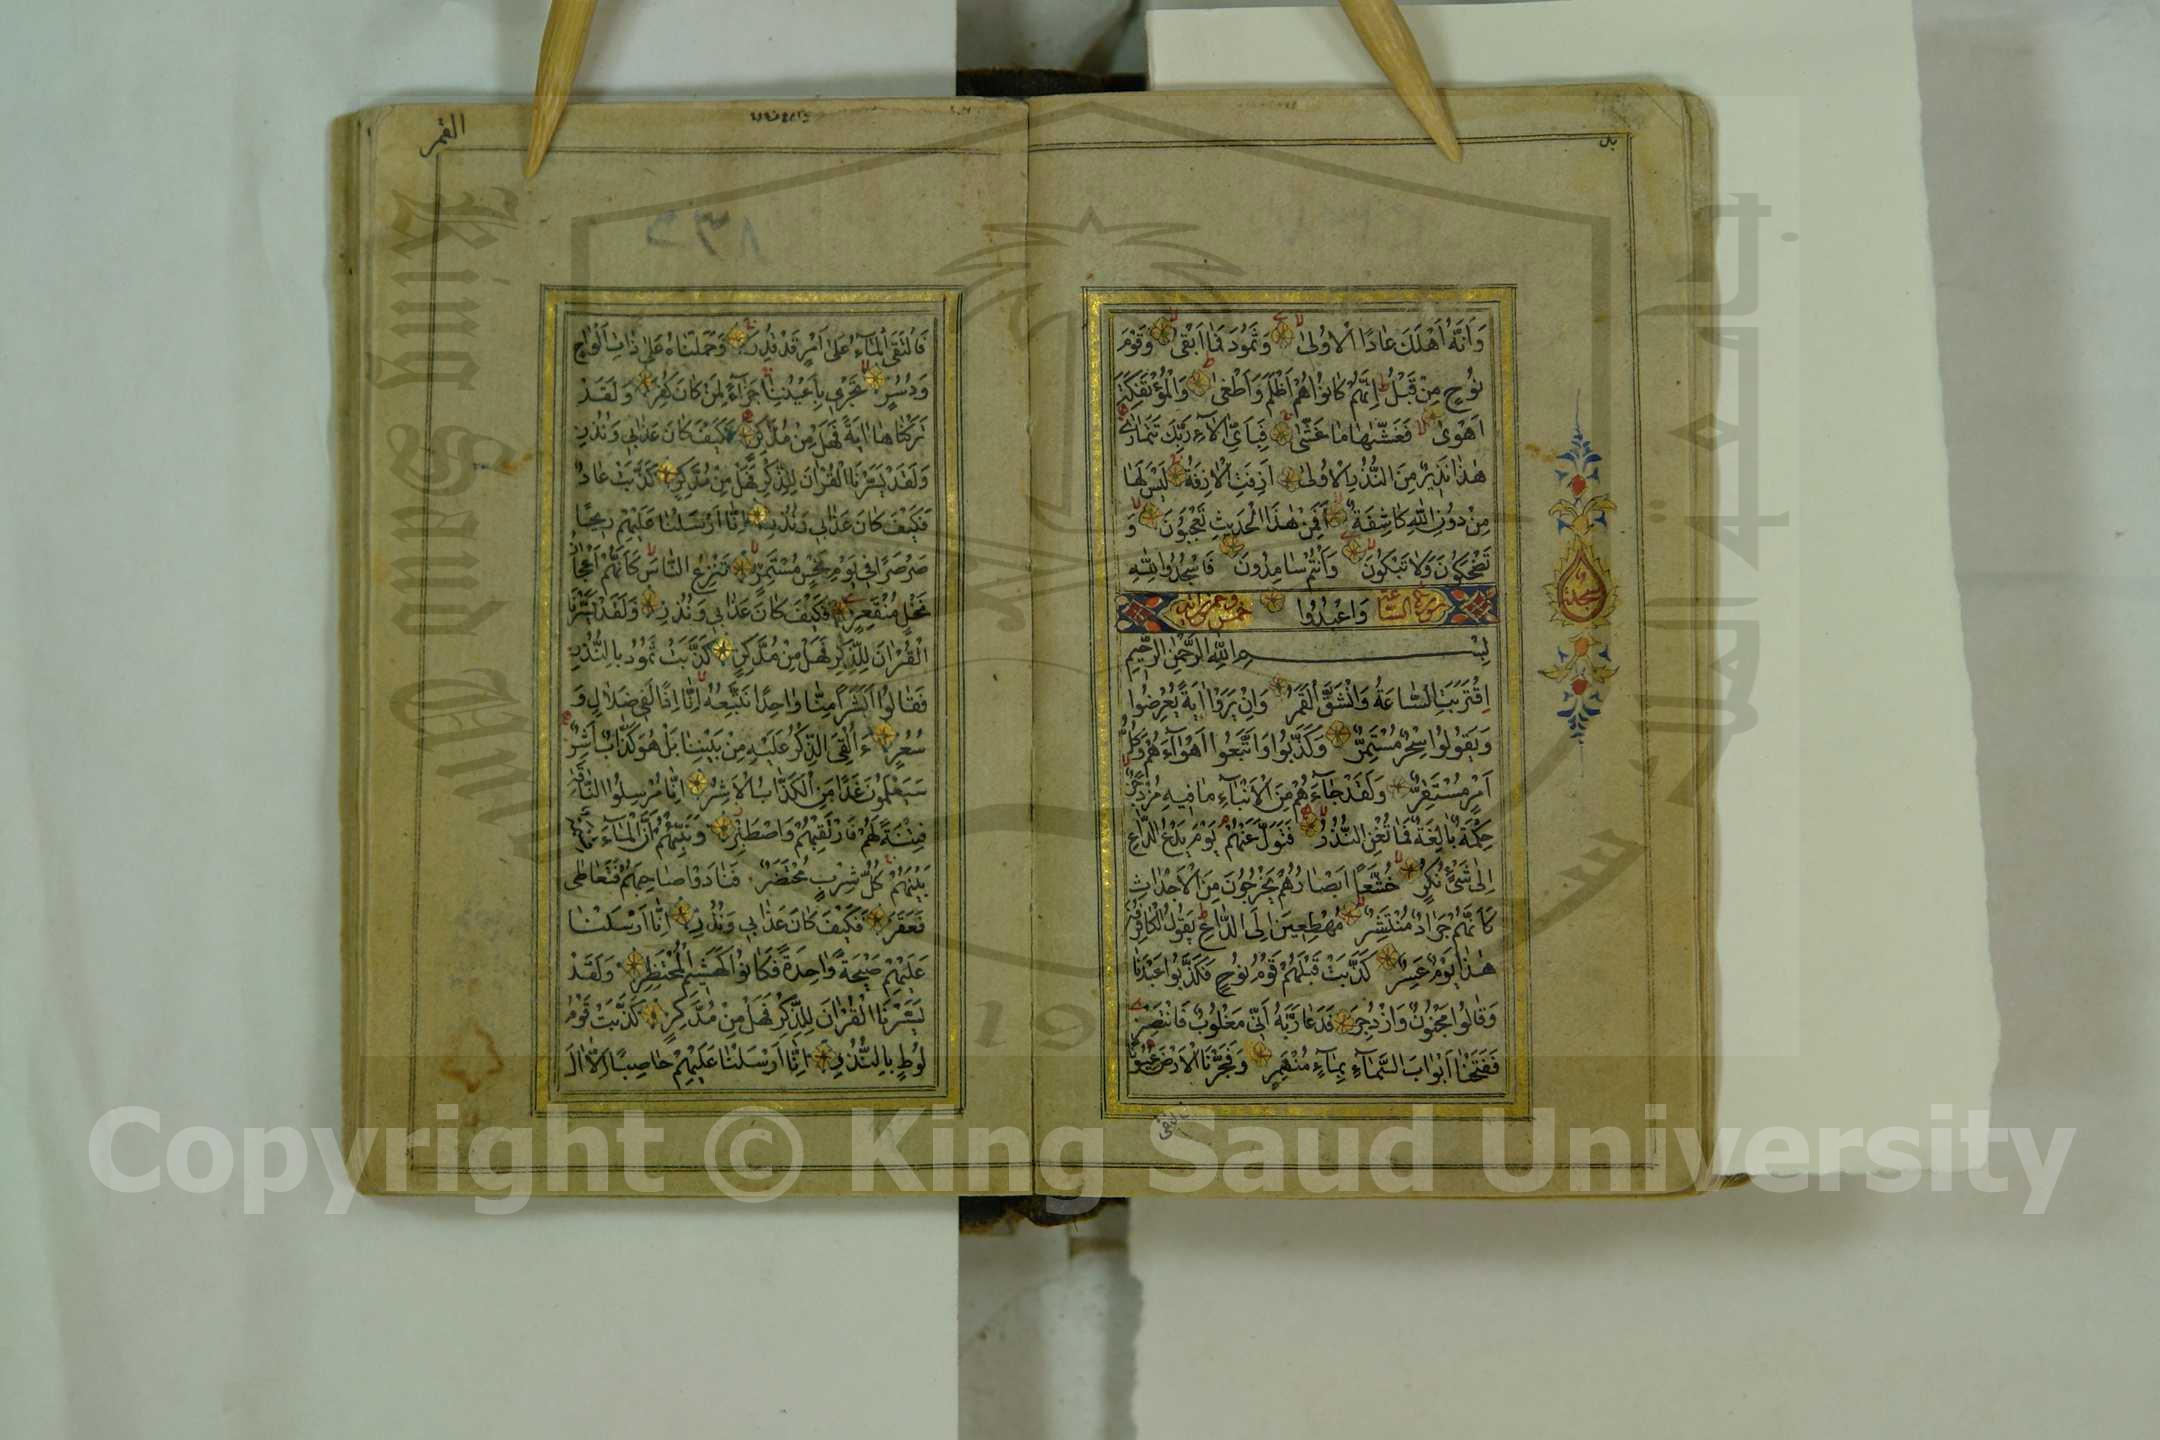 وَاَنَّهُ اَهْلَكَ عَادًا الْاُولٰى وَثَمُودَ فَمَا اَبْقٰى وَقَوْمَ
نُوحٍ مِنْ قَبْلُ اِنَّهُمْ كَانُوا هُمْ اَظْلَمَ وَاَطْغٰى وَالْمُؤْتَفِكَةَ
اَهْوٰى فَغَشّٰيهَا مَا غَشّٰى فَبِاَيِّ اٰلَاءِ رَبِّكَ تَتَمَارٰى
هٰذَا نَذِيرٌ مِنَ النُّذُرِ الْاُولٰى اَزِفَتِ الْاٰزِفَةُ لَيْسَ لَهَا
مِنْ دُونِ اللّٰهِ كَاشِفَةٌ اَفَمِنْ هٰذَا الْحَدِيثِ تَعْجَبُونَ وَ
تَضْحَكُونَ وَلَا تَبْكُونَ وَاَنْتُمْ سَامِدُونَ فَاسْجُدُوا لِلّٰهِ
وَاعْبُدُوا
بِسْمِ اللّٰهِ الرَّحْمٰنِ الرَّحِيمِ
اِقْتَرَبَتِ السَّاعَةُ وَانْشَقَّ الْقَمَرُ وَاِنْ يَرَوْا اٰيَةً يُعْرِضُوا
وَيَقُولُوا سِحْرٌ مُسْتَمِرٌّ وَكَذَّبُوا وَاتَّبَعُوا اَهْوَاءَهُمْ وَكُلُّ
اَمْرٍ مُسْتَقِرٌّ وَلَقَدْ جَاءَهُمْ مِنَ الْاَنْبَاءِ مَا فِيهِ مُزْدَجَرٌ
حِكْمَةٌ بَالِغَةٌ فَمَا تُغْنِ النُّذُرُ فَتَوَلَّ عَنْهُمْ يَوْمَ يَدْعُ الدَّاعِ
اِلٰى شَيْءٍ نُكُرٍ خُشَّعًا اَبْصَارُهُمْ يَخْرُجُونَ مِنَ الْاَجْدَاثِ
كَاَنَّهُمْ جَرَادٌ مُنْتَشِرٌ مُهْطِعِينَ اِلَى الدَّاعِ يَقُولُ الْكَافِرُونَ
هٰذَا يَوْمٌ عَسِرٌ كَذَّبَتْ قَبْلَهُمْ قَوْمُ نُوحٍ فَكَذَّبُوا عَبْدَنَا
وَقَالُوا مَجْنُونٌ وَازْدُجِرَ فَدَعَا رَبَّهُ اَنِّي مَغْلُوبٌ فَانْتَصِرْ
فَفَتَحْنَا اَبْوَابَ السَّمَاءِ بِمَاءٍ مُنْهَمِرٍ وَفَجَّرْنَا الْاَرْضَ عُيُونًا
فالتقى
القمر
٨٣٦
فَالْتَقَى الْمَاءُ عَلٰى اَمْرٍ قَدْ قُدِرَ وَحَمَلْنَاهُ عَلٰى ذَاتِ اَلْوَاحٍ
وَدُسُرٍ تَجْرِي بِاَعْيُنِنَا جَزَاءً لِمَنْ كَانَ كُفِرَ وَلَقَدْ
تَرَكْنَاهَا اٰيَةً فَهَلْ مِنْ مُدَّكِرٍ فَكَيْفَ كَانَ عَذَابِي وَنُذُرِ
وَلَقَدْ يَسَّرْنَا الْقُرْاٰنَ لِلذِّكْرِ فَهَلْ مِنْ مُدَّكِرٍ كَذَّبَتْ عَادٌ
فَكَيْفَ كَانَ عَذَابِي وَنُذُرِ اِنَّا اَرْسَلْنَا عَلَيْهِمْ رِيحًا
صَرْصَرًا فِي يَوْمِ نَحْسٍ مُسْتَمِرٍّ تَنْزِعُ النَّاسَ كَاَنَّهُمْ اَعْجَازُ
نَخْلٍ مُنْقَعِرٍ فَكَيْفَ كَانَ عَذَابِي وَنُذُرِ وَلَقَدْ يَسَّرْنَا
الْقُرْاٰنَ لِلذِّكْرِ فَهَلْ مِنْ مُدَّكِرٍ كَذَّبَتْ ثَمُودُ بِالنُّذُرِ
فَقَالُوا اَبَشَرًا مِنَّا وَاحِدًا نَتَّبِعُهُ اِنَّا اِذًا لَفِي ضَلَالٍ وَ
سُعُرٍ ءَاُلْقِيَ الذِّكْرُ عَلَيْهِ مِنْ بَيْنِنَا بَلْ هُوَ كَذَّابٌ اَشِرٌ
سَيَعْلَمُونَ غَدًا مَنِ الْكَذَّابُ الْاَشِرُ اِنَّا مُرْسِلُوا النَّاقَةِ
فِتْنَةً لَهُمْ فَارْتَقِبْهُمْ وَاصْطَبِرْ وَنَبِّئْهُمْ اَنَّ الْمَاءَ قِسْمَةٌ
بَيْنَهُمْ كُلُّ شِرْبٍ مُحْتَضَرٌ فَنَادَوْا صَاحِبَهُمْ فَتَعَاطٰى
فَعَقَرَ فَكَيْفَ كَانَ عَذَابِي وَنُذُرِ اِنَّا اَرْسَلْنَا
عَلَيْهِمْ صَيْحَةً وَاحِدَةً فَكَانُوا كَهَشِيمِ الْمُحْتَظِرِ وَلَقَدْ
يَسَّرْنَا الْقُرْاٰنَ لِلذِّكْرِ فَهَلْ مِنْ مُدَّكِرٍ كَذَّبَتْ قَوْمُ
لُوطٍ بِالنُّذُرِ اِنَّا اَرْسَلْنَا عَلَيْهِمْ حَاصِبًا اِلَّا اٰلَ
Copyright © King Saud University